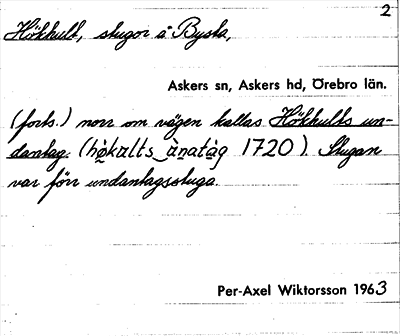 2
Hökhult, stugor å Bysta,
Askers sn, Askers hd, Örebro län.
(forts.) norr om vägen kallas Hökhults un-
dantag. (hø̀kults_ànatàg 1720). Stugan
var förr undantagsstuga.
Per-Axel Wiktorsson 1963